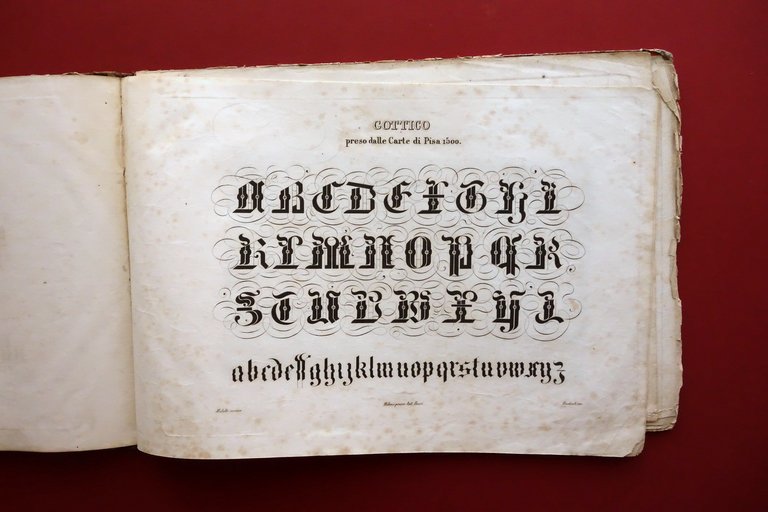 GOTTICO
preso dalle Carte di Pisa 1500.
A B C D E F G H I
K L M N O P Q R
S T U V W X Y Z
a b c d e f f g h i j k l m n o p q r s t u v w x y z